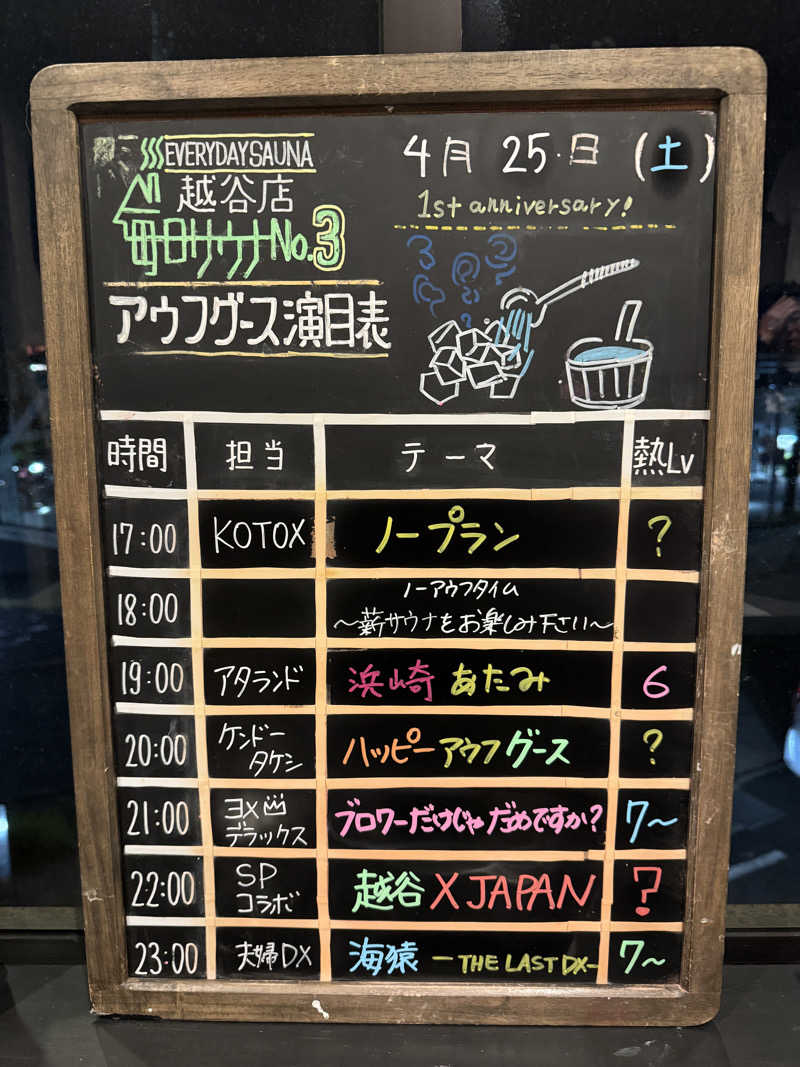 EVERYDAYSAUNA
越谷店
毎日サウナNo.3
アウフグース演目表
4月25日(土)
1st anniversary!
時間 担当 テーマ 熱Lv
17:00 KOTOX ノープラン ?
18:00 ノーアウフタイム
〜薪サウナをお楽しみ下さい〜
19:00 アタランド 浜崎あたみ 6
20:00 ケンドー
タケシ ハッピーアウフグース ?
21:00 ヨメ
デラックス ブロワーだけじゃだめですか? 7〜
22:00 SP
コラボ 越谷 X JAPAN ?
23:00 夫婦DX 海猿 -THE LAST DX- 7〜